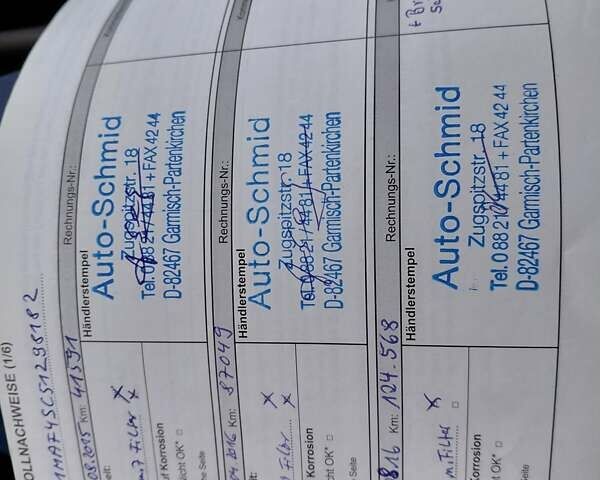 OLLNACHWEISE (1/6)
1MAF4SC51298182
.08.2015 Km: 41591 Rechnungs-Nr.:
Händlerstempel
Auto-Schmid
Zugspitzstr. 18
Tel. 0 88 21 / 44 81 + FAX 42 44
D-82467 Garmisch-Partenkirchen
m7 Filter X X
Korrosion
icht OK* □
he Seite
04 2016 Km: 87049 Rechnungs-Nr.:
Händlerstempel
Auto-Schmid
Zugspitzstr. 18
Tel. 0 88 21 / 44 81 + FAX 42 44
D-82467 Garmisch-Partenkirchen
Filter X X
Korrosion
icht OK* □
he Seite
8.16 Km: 124.568 Rechnungs-Nr.:
Händlerstempel
Auto-Schmid
Zugspitzstr. 18
Tel. 0 88 21 / 44 81 + FAX 42 44
D-82467 Garmisch-Partenkirchen
m Filter X □
Korrosion
icht OK* □
Seite